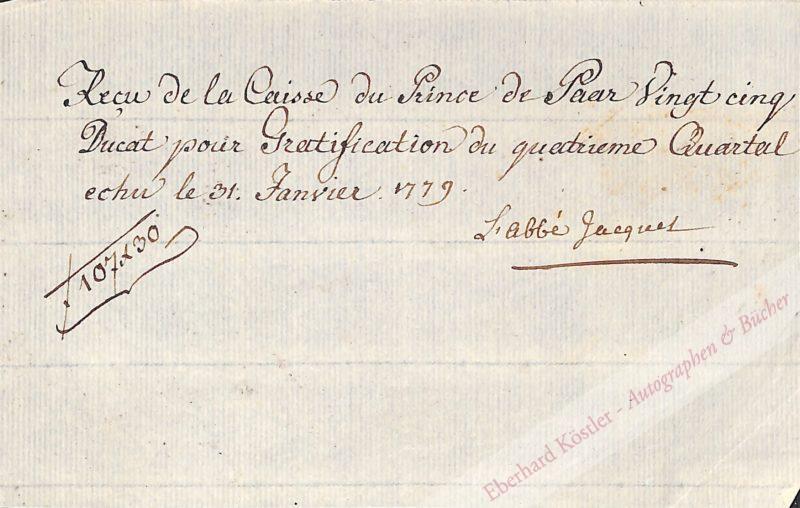 Reçu de la Caisse du Prince de Paar Vingt cinq
Ducat pour Gratification du quatrieme Quartal
echu le 31. Janvier. 1779.
L'abbé Jacquet
107 x 30
Eberhard Köstler - Autographen & Bücher